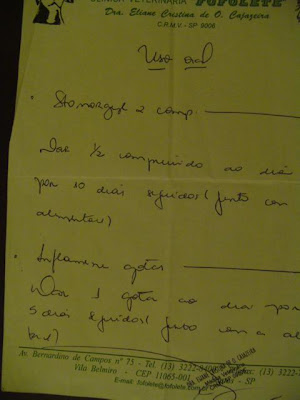 CLÍNICA VETERINÁRIA "FOFOLETE"
Dra. Eliane Cristina de O. Cajazeira
C.R.M.V. - SP 9008
Uso oral
Stomorgyl 2 comp.
Dar 1/2 comprimido ao dia
por 10 dias seguidos (junto com
alimentar)
Inflamene gotas
Dar 1 gota ao dia por
5 dias seguidos (junto com a al
Av. Bernardino de Campos nº 75 - Tel. (13) 3222-9400
Vila Belmiro - CEP 11065-001 - SP
E-mail: fofolete@fofolete.com